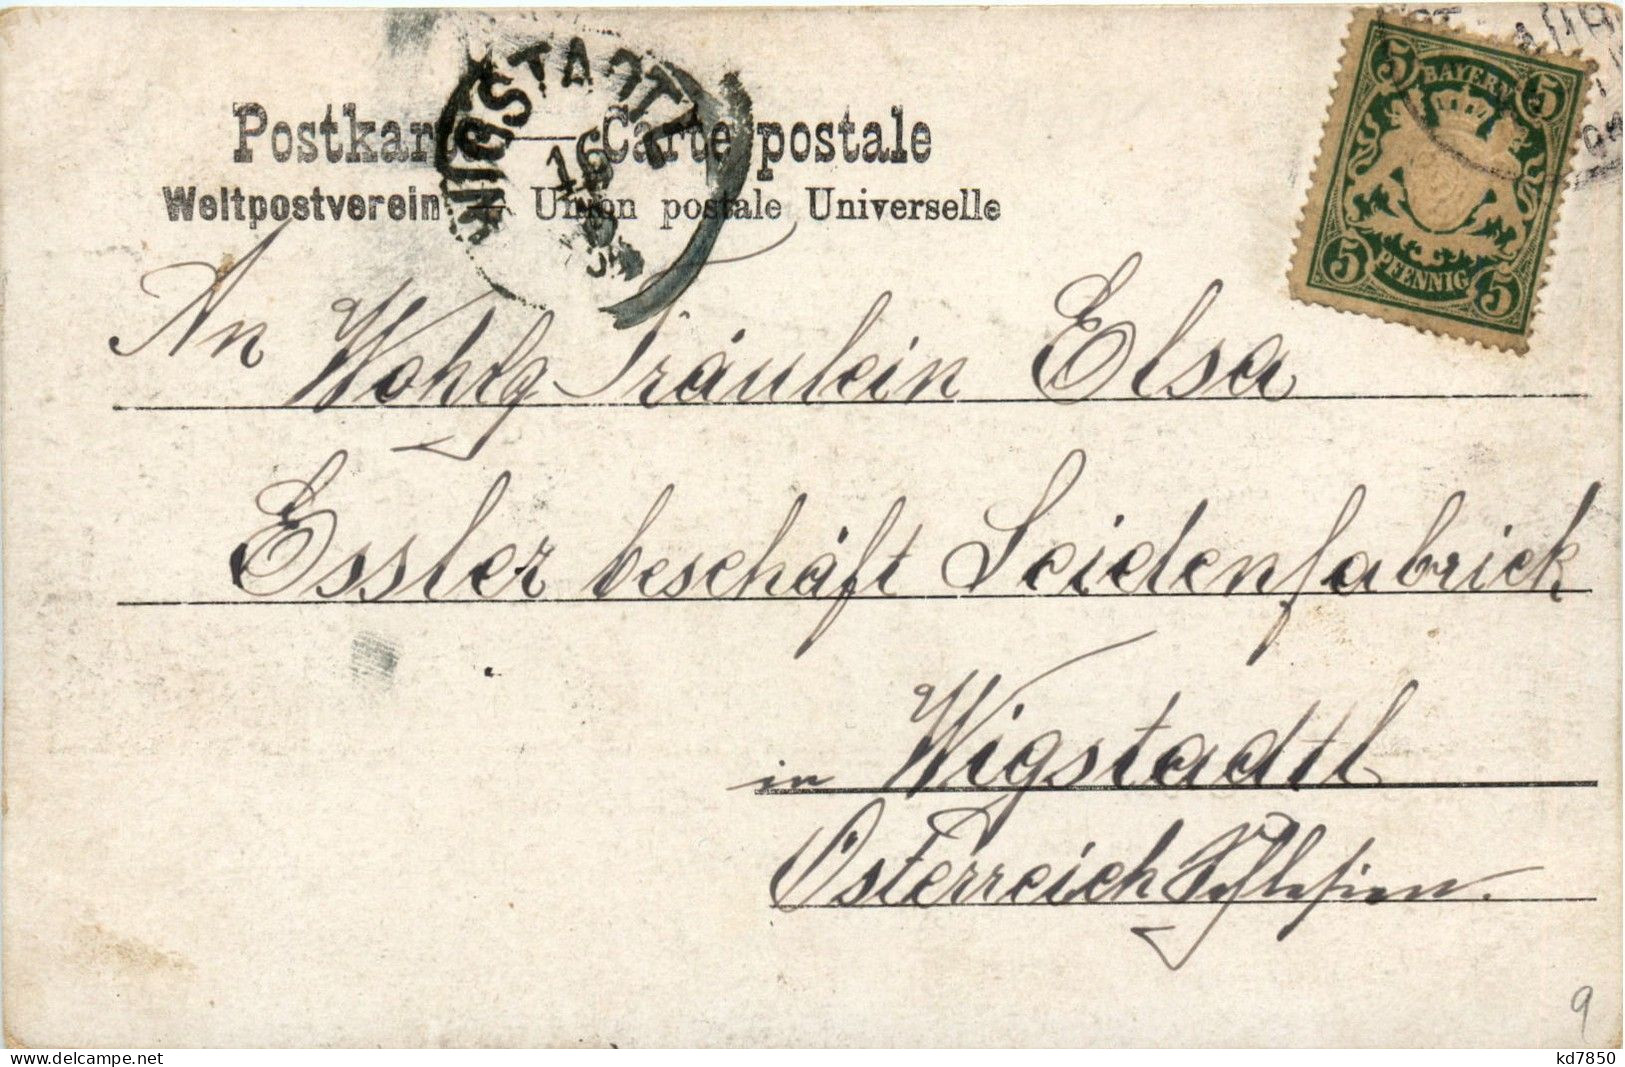 Postkarte — Carte postale
Weltpostverein — Union postale Universelle
WIGSTADTL
16
5 BAYERN 5
5 PFENNIG 5
An Wohlg Fräulein Elsa
Essler beschäft Seidenfabrick
in Wigstadtl
Österreich Schlesien.
9
kd7850